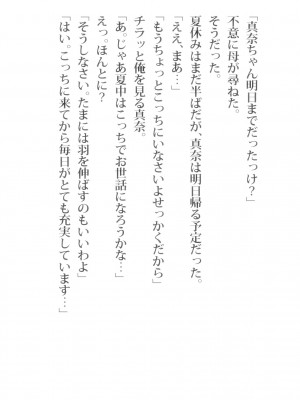 「真奈ちゃん明日までだったっけ？」
不意に母が尋ねた。
そうだった。
夏休みはまだ半ばだが、真奈は明日帰る予定だった。
「ええ、まあ…」
「もうちょっとこっちにいなさいよせっかくだから」
チラッと俺を見る真奈。
「あ。じゃあ夏中はこっちでお世話になろうかな…」
えっ。ほんとに？
「そうしなさい。たまには羽を伸ばすのもいいわよ」
「はい。こっちに来てから毎日がとても充実しています…」